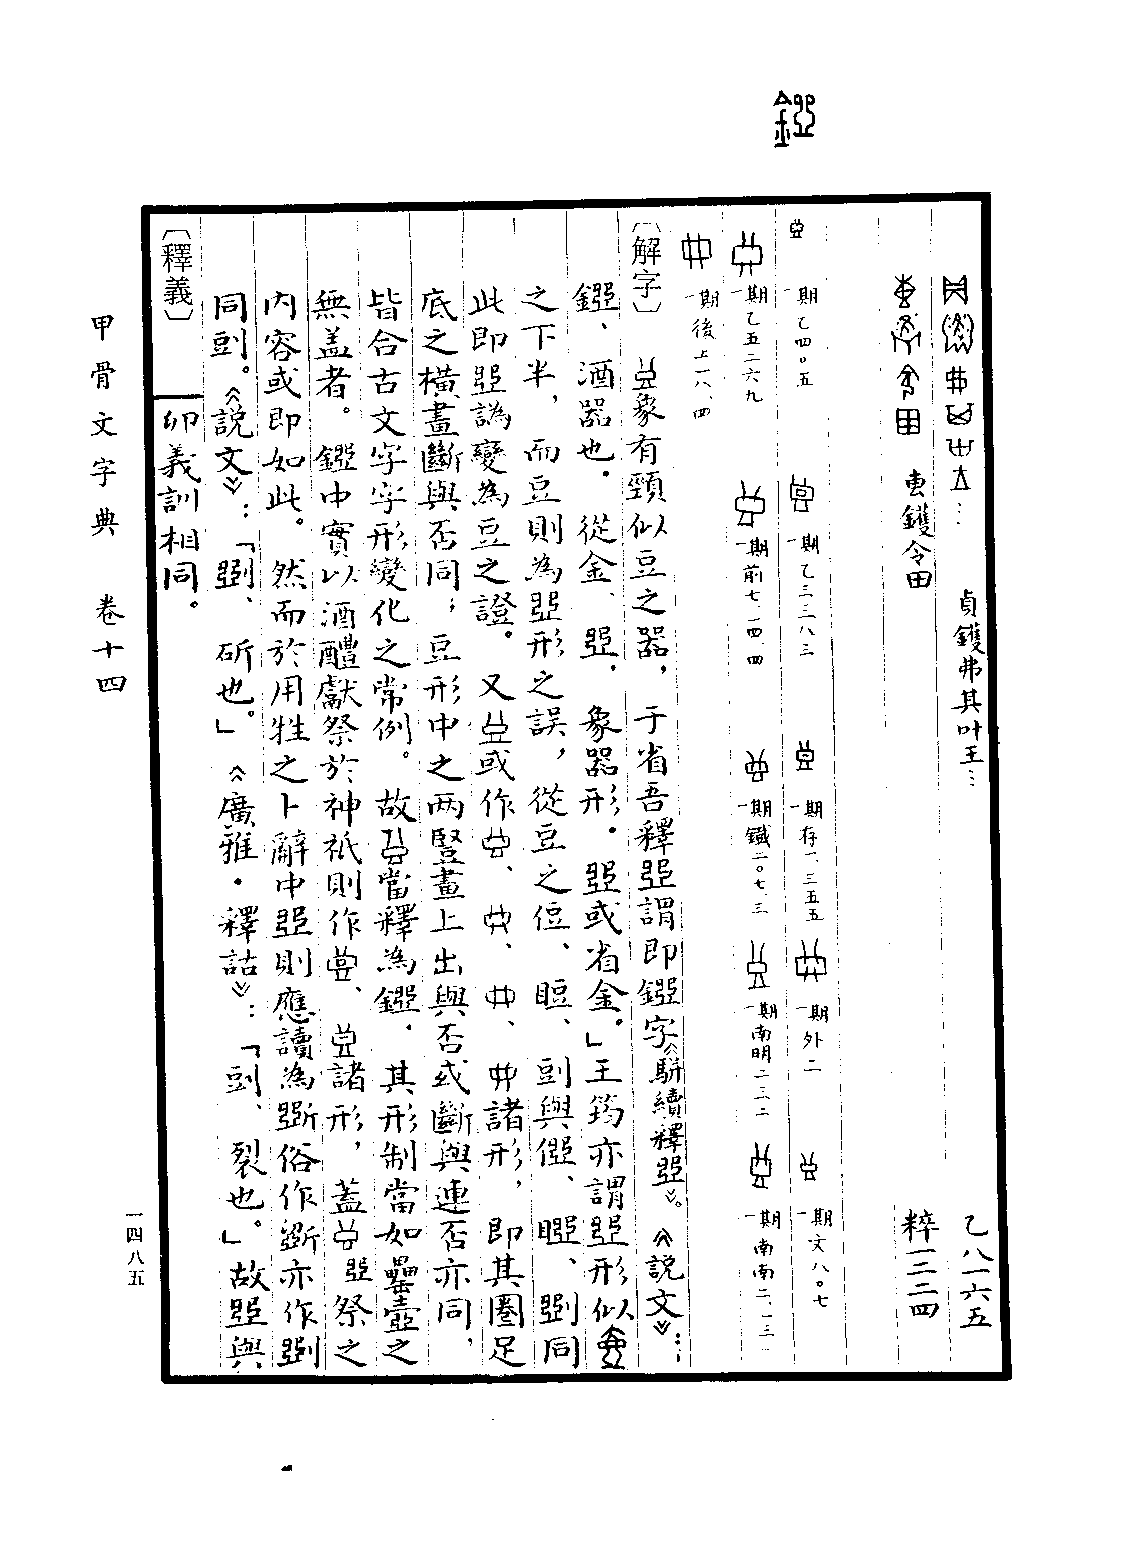 𨪐
貞鑊弗其叶王…　乙八一六五
叀鑊令田　粹一二二四
一期乙四〇五　一期乙三三八三　一期存一、一三五五　一期外二　一期文八〇七
一期乙五二六九　一期前七、一四、四　一期鐵二〇七、三　一期南明二三二　一期南南二、一三一
一期後上一八、四
〔解字〕象有頸似豆之器，于省吾釋𠁁謂即𨪐字《駢續釋𠁁》。《說文》：
「𨪐、酒器也。從金、𠁁，象器形。𠁁或省金。」王筠亦謂𠁁形似
之下半，而豆則為𠁁形之誤，從豆之侸、䀔、剅與、、同
此即𠁁譌變為豆之證。又或作、、、諸形，即其圈足
底之橫畫斷與否同；豆形中之兩豎畫上出與否或斷與連否亦同，
皆合古文字字形變化之常例。故當釋為𨪐．其形制當如罍壺之
無盖者。𨪐中實以酒醴獻祭於神祇則作、諸形，蓋𠁁祭之
內容或即如此。然而於用牲之卜辭中𠁁則應讀為斲俗作斵亦作
同剅。《說文》：「、斫也。」《廣雅．釋詁》：「剅、裂也。」故𠁁與
〔釋義〕
一卯義訓相同。
甲骨文字典　卷十四
一四八五